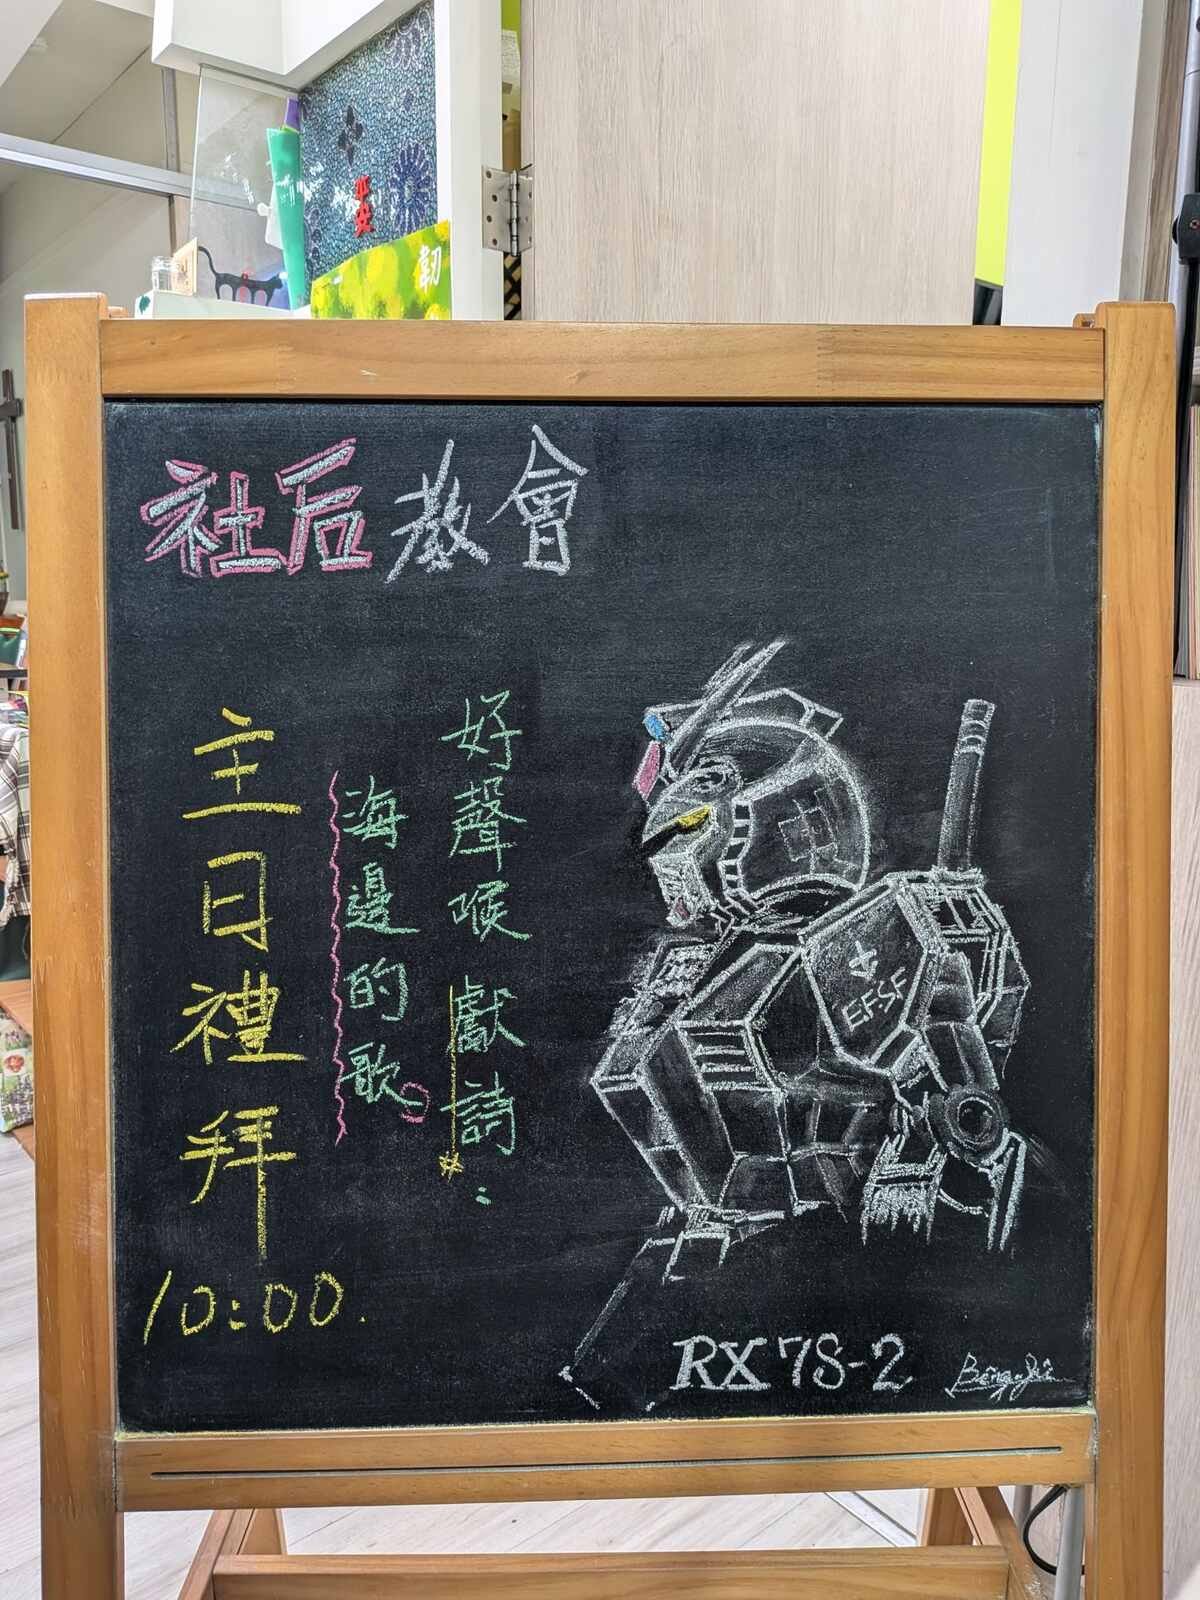 平安
韌
社后教會
好聲喉 獻詩：
海邊的歌。
主日禮拜
10:00.
EFSF
RX 78-2